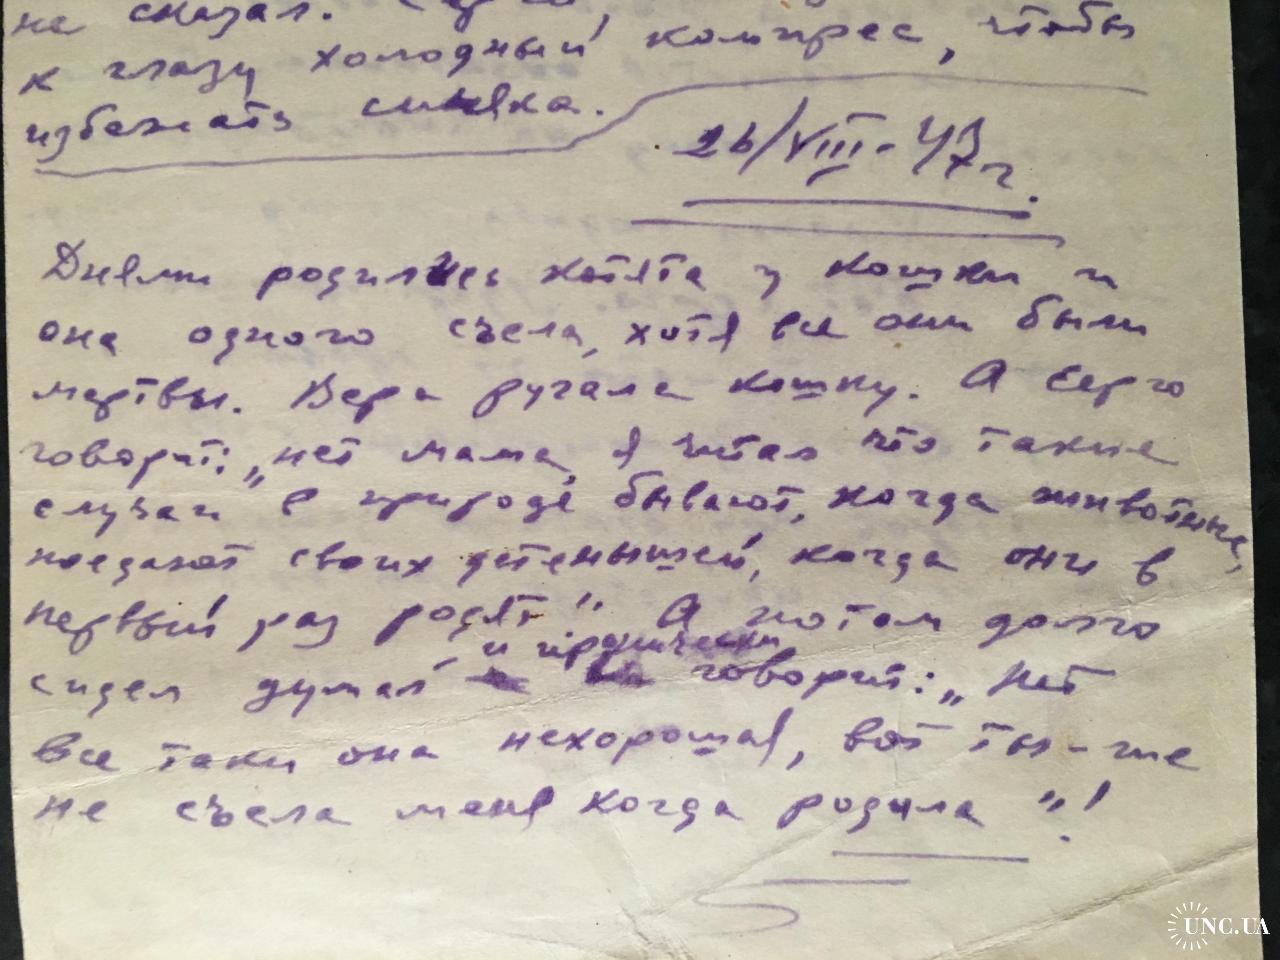 не сказал.
к глазу холодный компрес, чтобы
избежать синяка.
26/VIII-47г.
Днями родились котята у кошки и
она одного съела, хотя все они были
мертвы. Вера ругала кошку. А Серго
говорит: „нет мама, я читал что такие
случаи в природе бывают, когда животные,
поедают своих детенышей, когда они в
первый раз родят". А потом долго
сидел думал и иронически говорит: „Нет
все таки она нехорошая, вот ты-же
не съела меня когда родила"!
UNC.UA